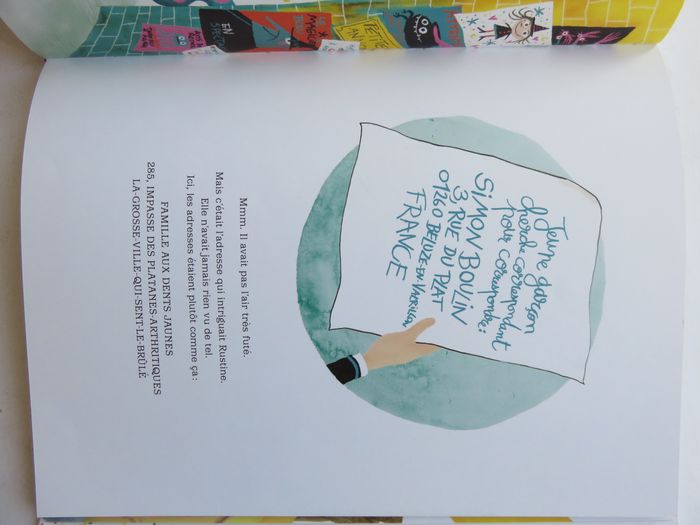 Jeune garçon
cherche correspondant
pour correspondre:
SIMON BOULIN
3, RUE DU PLAT
01260 BELUZE-EN-VALRIEUX
FRANCE
Mmm. Il avait pas l'air très futé.
Mais c'était l'adresse qui intriguait Rustine.
Elle n'avait jamais rien vu de tel.
Ici, les adresses étaient plutôt comme ça :
FAMILLE AUX DENTS JAUNES
285, IMPASSE DES PLATANES-ARTHRITIQUES
LA-GROSSE-VILLE-QUI-SENT-LE-BRÛLÉ
EN